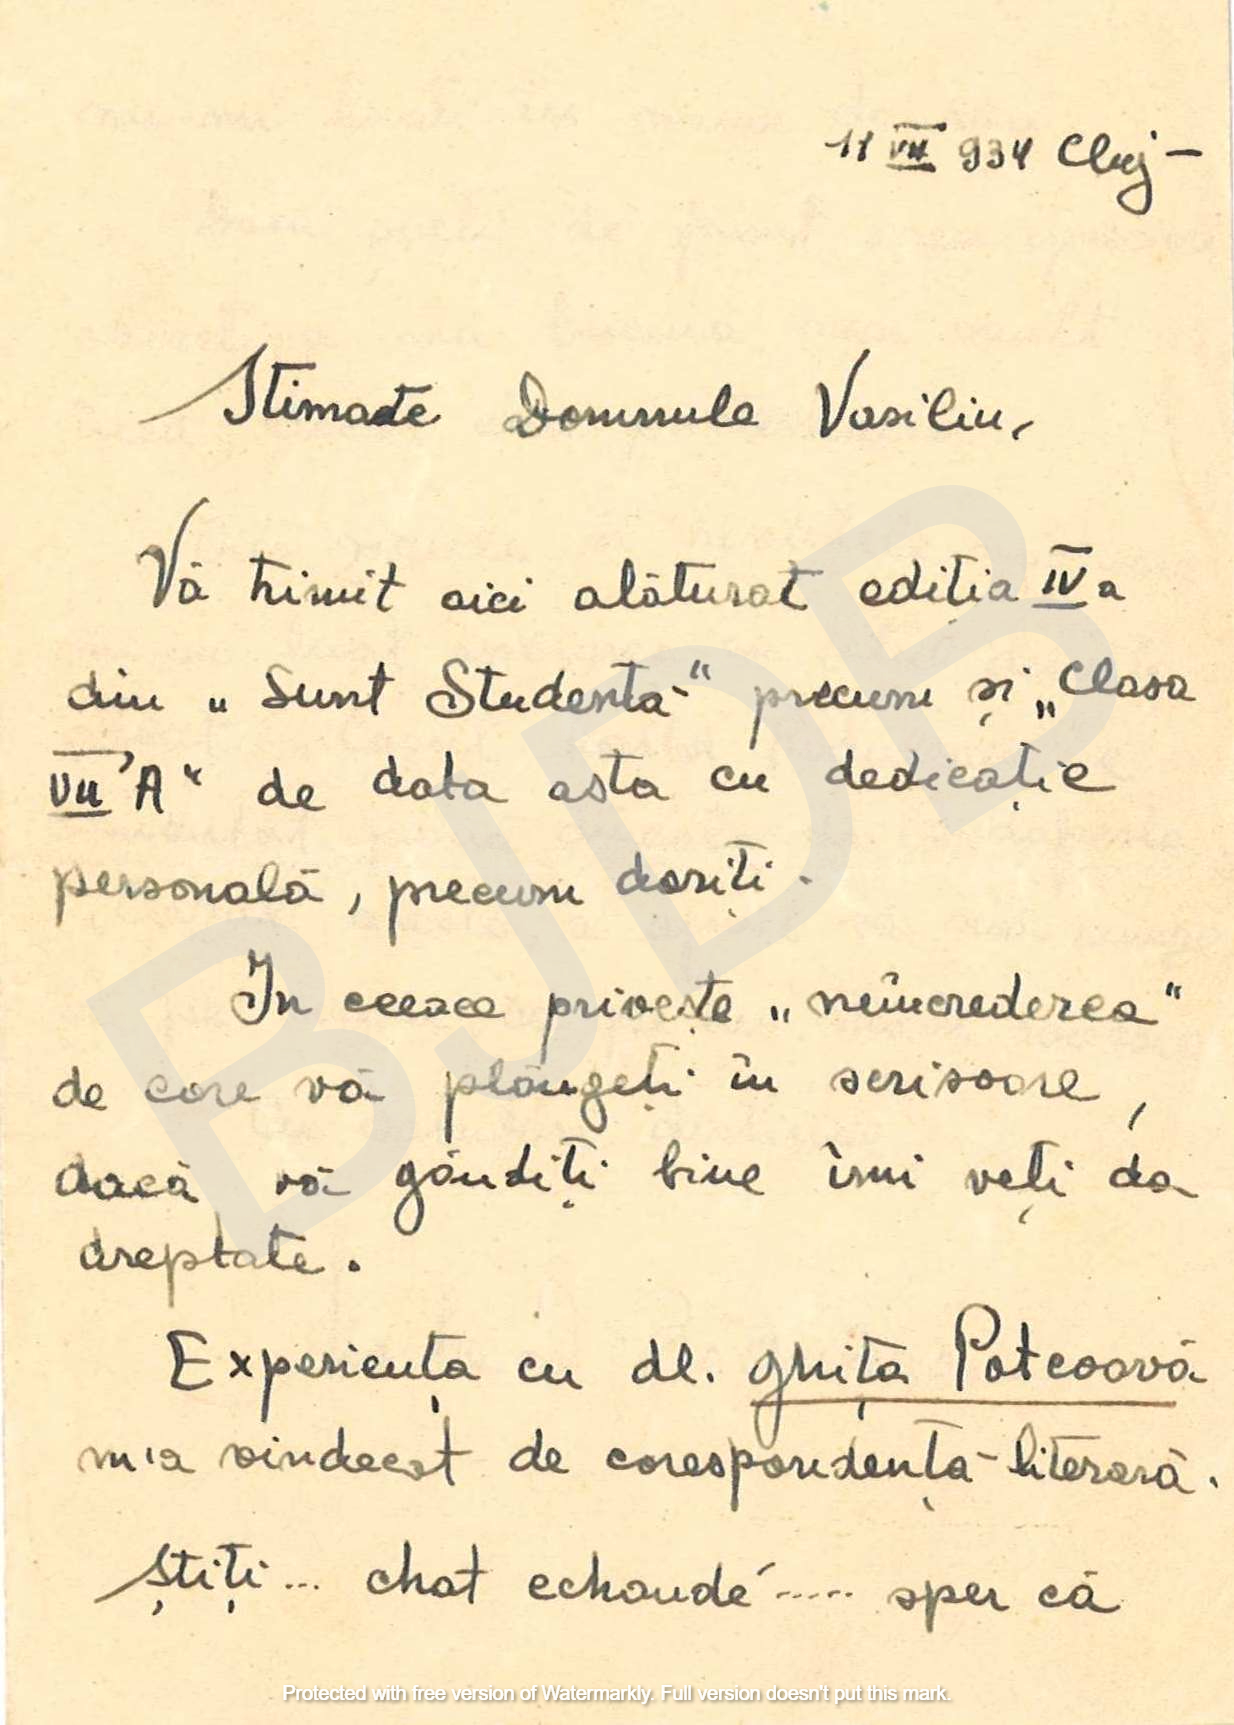 11 VII 934 Cluj –
Stimate Domnule Vasiliu,
Vă trimit aici alăturat ediția IV a
din „Sunt Studentă“ precum și „Clasa
VII A“ de data asta cu dedicație
personală, precum doriți.
In ceeace privește „neîncrederea“
de care vă plângeți în scrisoare,
dacă vă gândiți bine îmi veți da
dreptate.
Experiența cu dl. Ghița Potcoavă
m'a vindecat de corespondență literară.
Știți... chat echaudé..... sper că
BJDB
Protected with free version of Watermarkly. Full version doesn't put this mark.